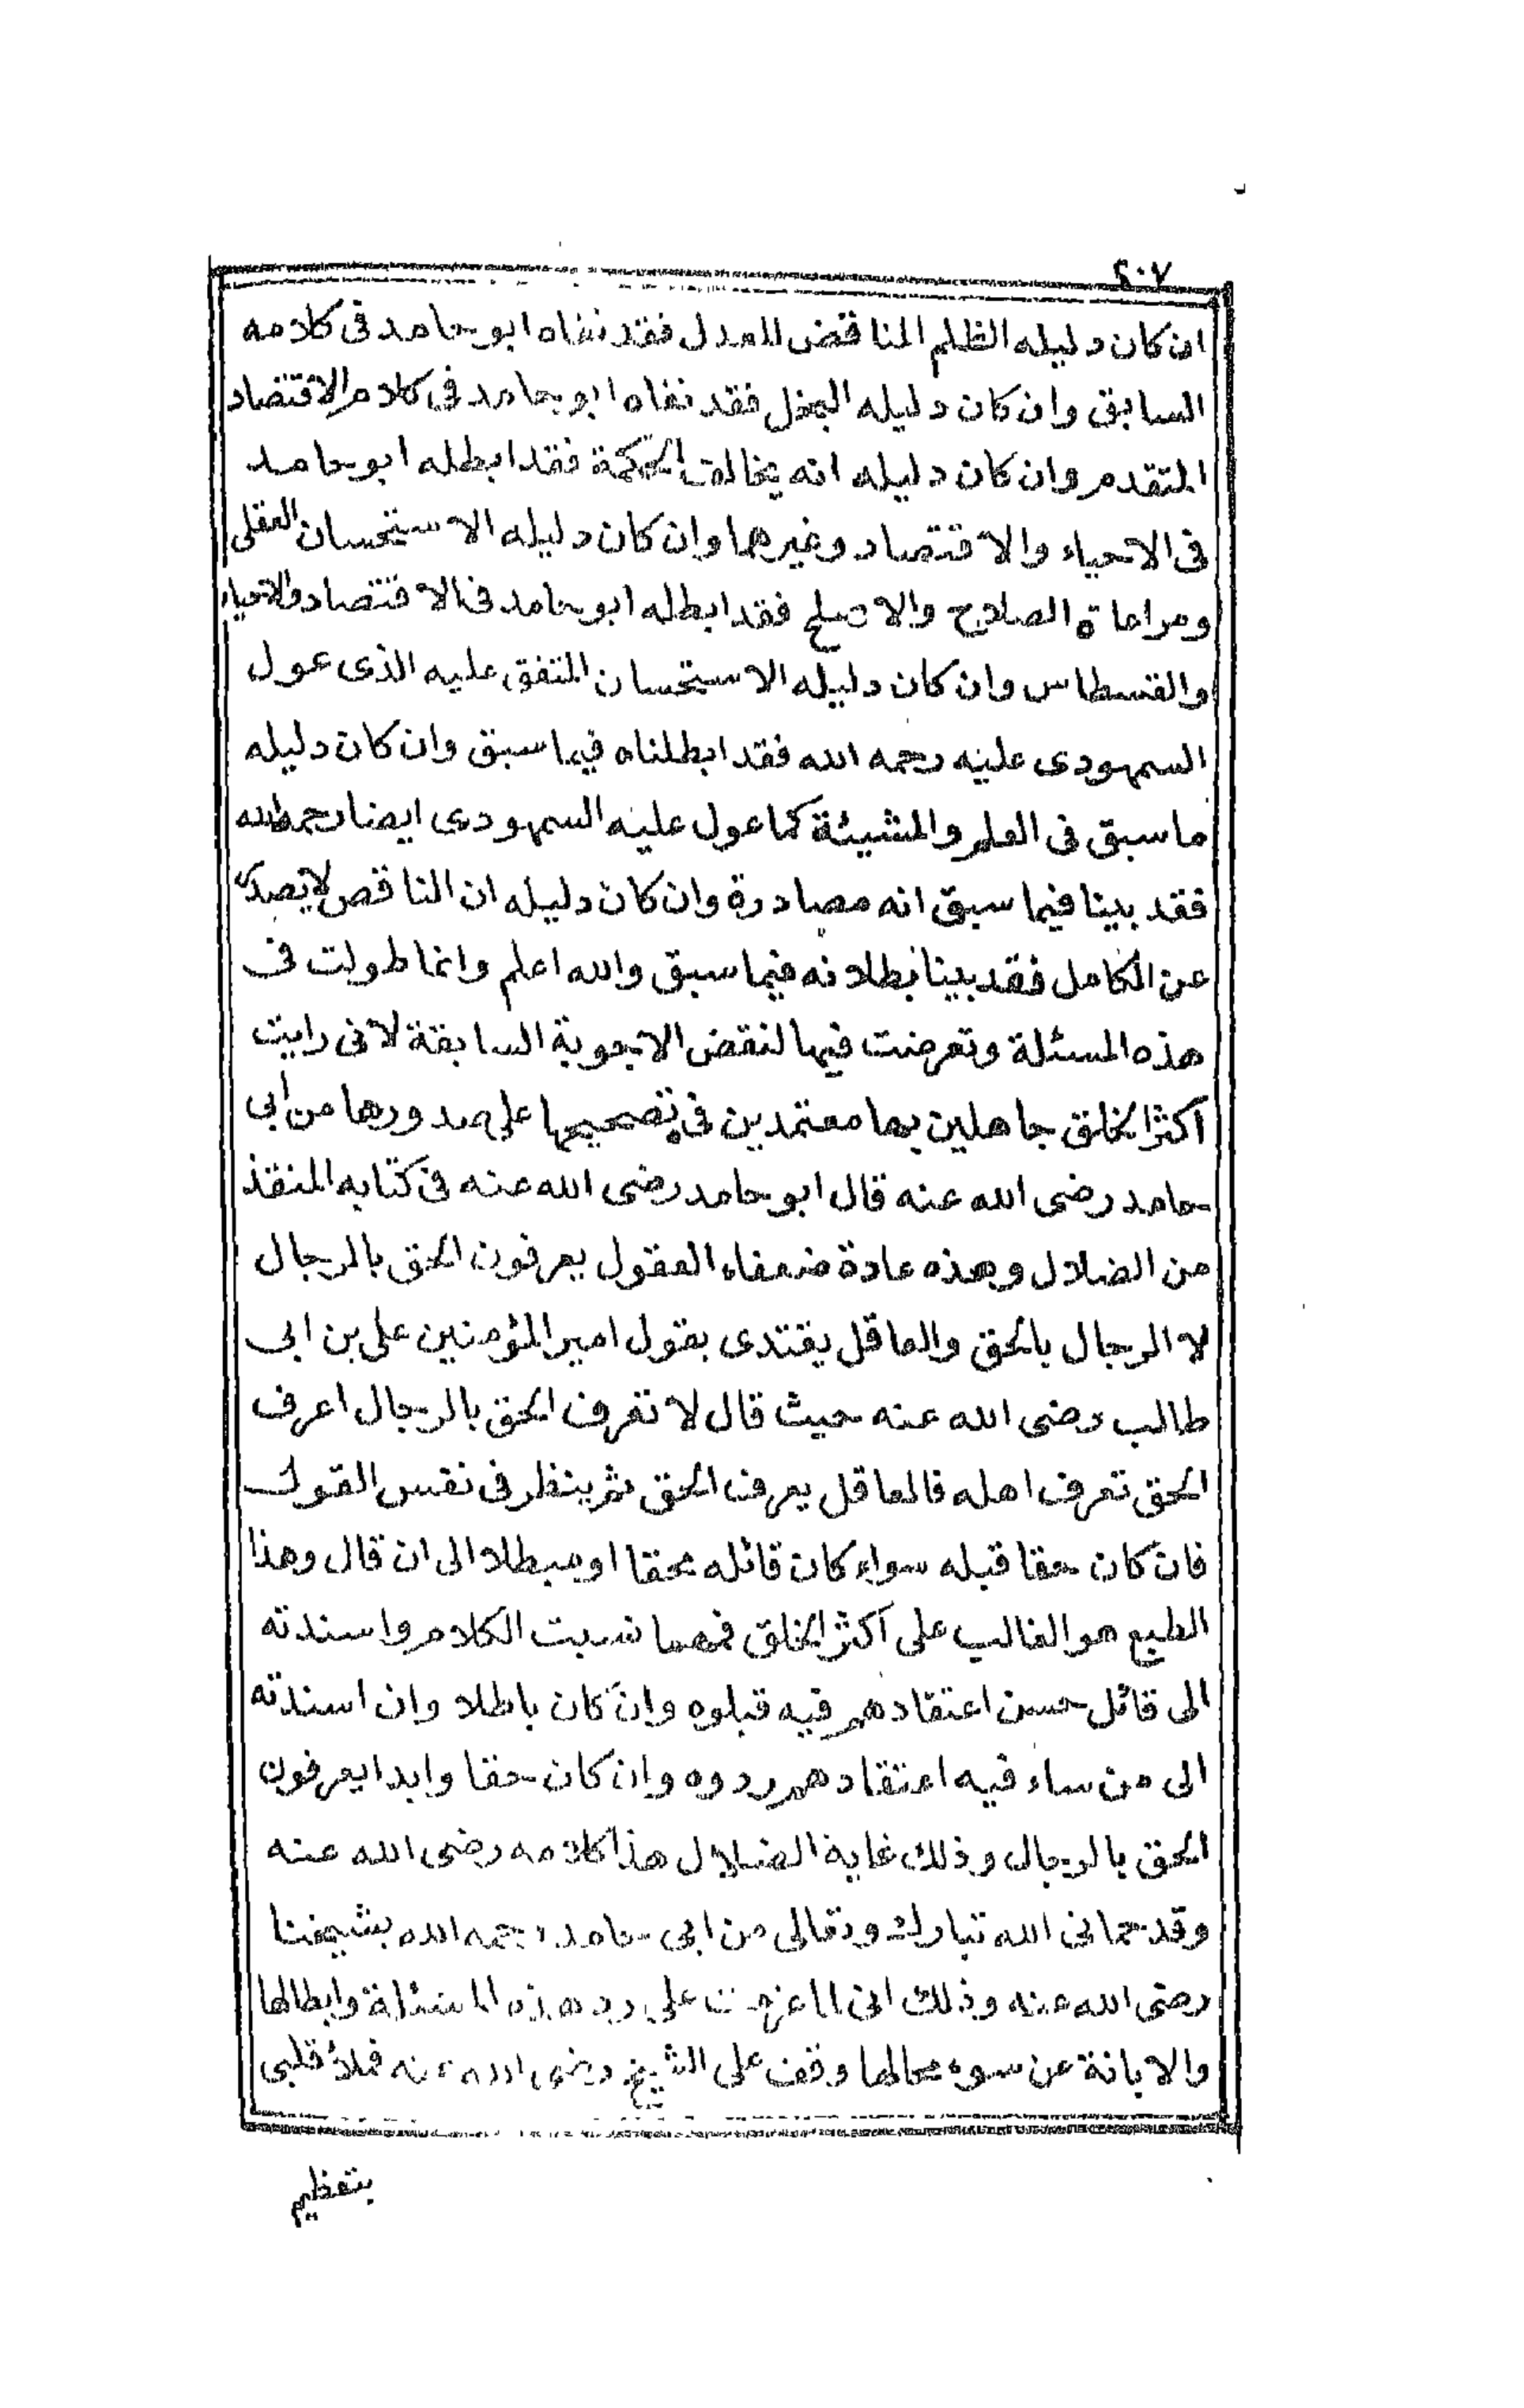 ٤٠٧
ان كان دليله الظلم المناقض للعدل فقد نفاه ابو حامد فى كلامه
السابق وان كان دليله البخل فقد نفاه ابو حامد فى كلام الاقتصاد
المتقدم وان كان دليله انه يخالف الحكمة فقد ابطله ابو حامد
فى الاحياء والاقتصاد وغيرهما وان كان دليله الاستحسان العقلى
ومراعاة الصلاح والاصلح فقد ابطله ابو حامد فى الاقتصاد والاحياء
والقسطاس وان كان دليله الاستحسان المتفق عليه الذى عول
السمهودى عليه رحمه الله فقد ابطلناه فيما سبق وان كان دليله
ما سبق فى العلم والمشيئة كما عول عليه السمهودى ايضا رحمه الله
فقد بينا فيما سبق انه مصادرة وان كان دليله ان الناقص لا يصدر
عن الكامل فقد بينا بطلانه فيما سبق والله اعلم وانما طولت فى
هذه المسئلة وتعرضت فيها لنقض الاجوبة السابقة لانى رايت
اكثر الخلق جاهلين بها معتمدين فى تصحيحها على صدورها من ابى
حامد رضى الله عنه قال ابو حامد رضى الله عنه فى كتابه المنقذ
من الضلال وهذه عادة ضعفاء العقول يعرفون الحق بالرجال
لا الرجال بالحق والعاقل يقتدى بقول امير المؤمنين على بن ابى
طالب رضى الله عنه حيث قال لا تعرف الحق بالرجال اعرف
الحق تعرف اهله فالعاقل يعرف الحق ثم ينظر فى نفس القول
فان كان حقا قبله سواء كان قائله محقا او مبطلا الى ان قال وهذا
الطبع هو الغالب على اكثر الخلق فمهما نسبت الكلام واسندته
الى قائل حسن اعتقادهم فيه قبلوه وان كان باطلا وان اسندته
الى من ساء فيه اعتقادهم ردوه وان كان حقا وابدا يعرفون
الحق بالرجال وذلك غاية الضلال هذا كلامه رضى الله عنه
وقد حمانى الله تبارك وتعالى من ابى حامد رحمه الله بشيخنا
رضى الله عنه وذلك انى لما عزمت على رد هذه المسئلة وابطالها
والابانة عن سوء محالها وقف على الشيخ رضى الله عنه فملأ قلبى
بتعظيم